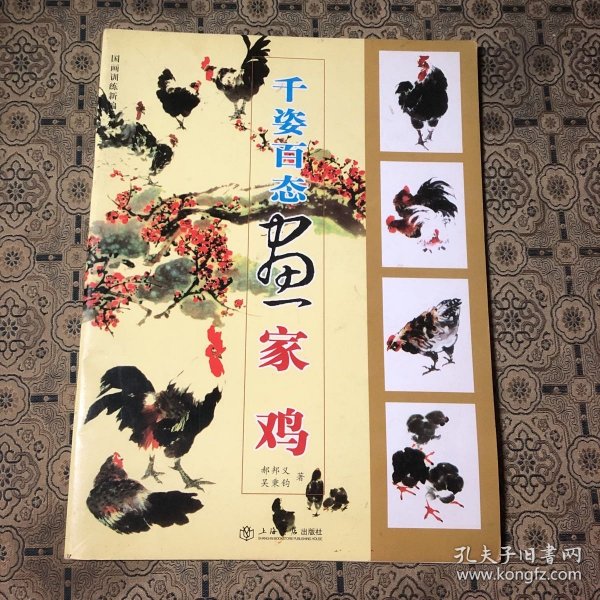 国画训练新
千姿百态
画
家鸡
郝邦义
吴秉钧
著
上海书店出版社
SHANGHAI BOOKSTORE PUBLISHING HOUSE
孔夫子旧书网
www.kongfz.com